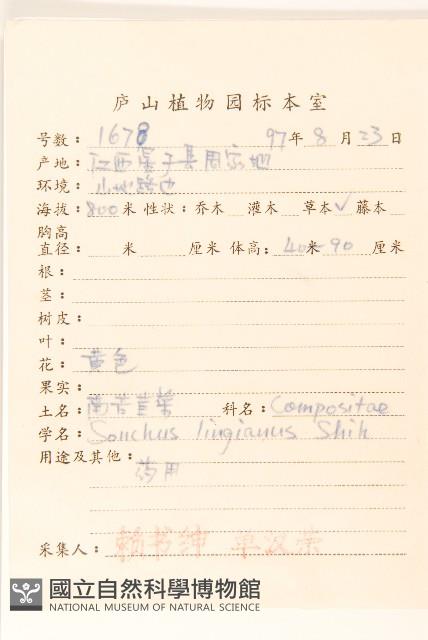 庐山植物园标本室
号数：1678 97年8月23日
产地：江西星子县周家地
环境：山地路边
海拔：800米 性状：乔木 灌木 草本√ 藤本
胸高
直径： 米 厘米 体高：40米-90 厘米
根：
茎：
树皮：
叶：
花：黄色
果实：
土名：南苦苣菜 科名：Compositae
学名：Sonchus lingianus Shih
用途及其他：
药用
采集人：赖书绅 单汉荣
國立自然科學博物館
NATIONAL MUSEUM OF NATURAL SCIENCE